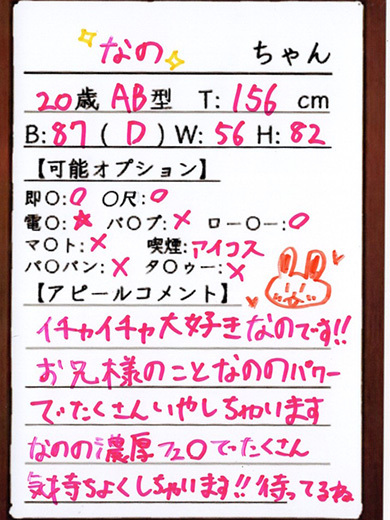 なの ちゃん
20歳 AB型 T:156 cm
B:87(D)W:56 H:82
【可能オプション】
即〇:○ 〇尺:○
電〇:★ バ〇ブ:× ロー〇ー:○
マ〇ト:× 喫煙:アイコス
パ〇パン:× タ〇ゥー:×
【アピールコメント】
イチャイチャ大好きなのです!!
お兄様のことなののパワー
でたくさんいやしちゃいます
なのの濃厚フェ〇でたくさん
気持ちよくしちゃいます!!待ってるね